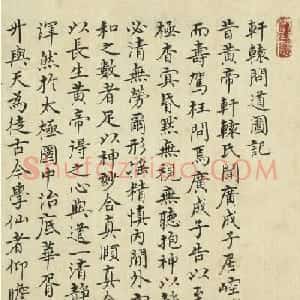 軒轅問道圖記
昔黃帝軒轅氏聞廣成子居崆
而壽駕枉問焉廣成子告以至
極杳冥昏默無無聽抱神以
必清無勞爾形精慎內閉外
和之數者足以神合真順真
以長生黃帝得之心與道一清靜
渾然於太極圈中治底華胥
升與天為徒古今學仙者仰瞻